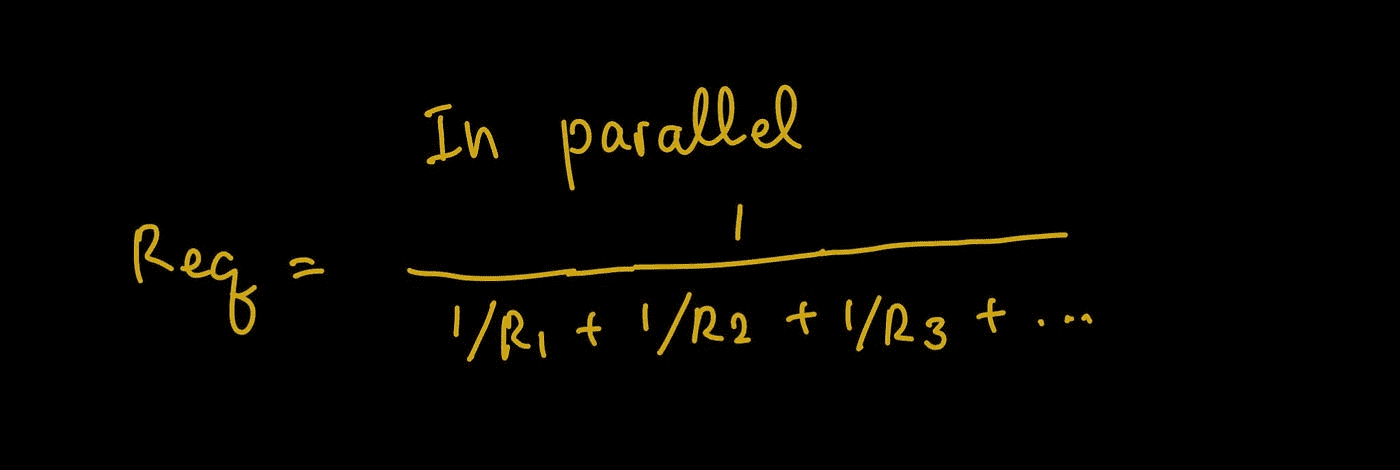 In parallel
Req = 1
1/R1 + 1/R2 + 1/R3 + ...